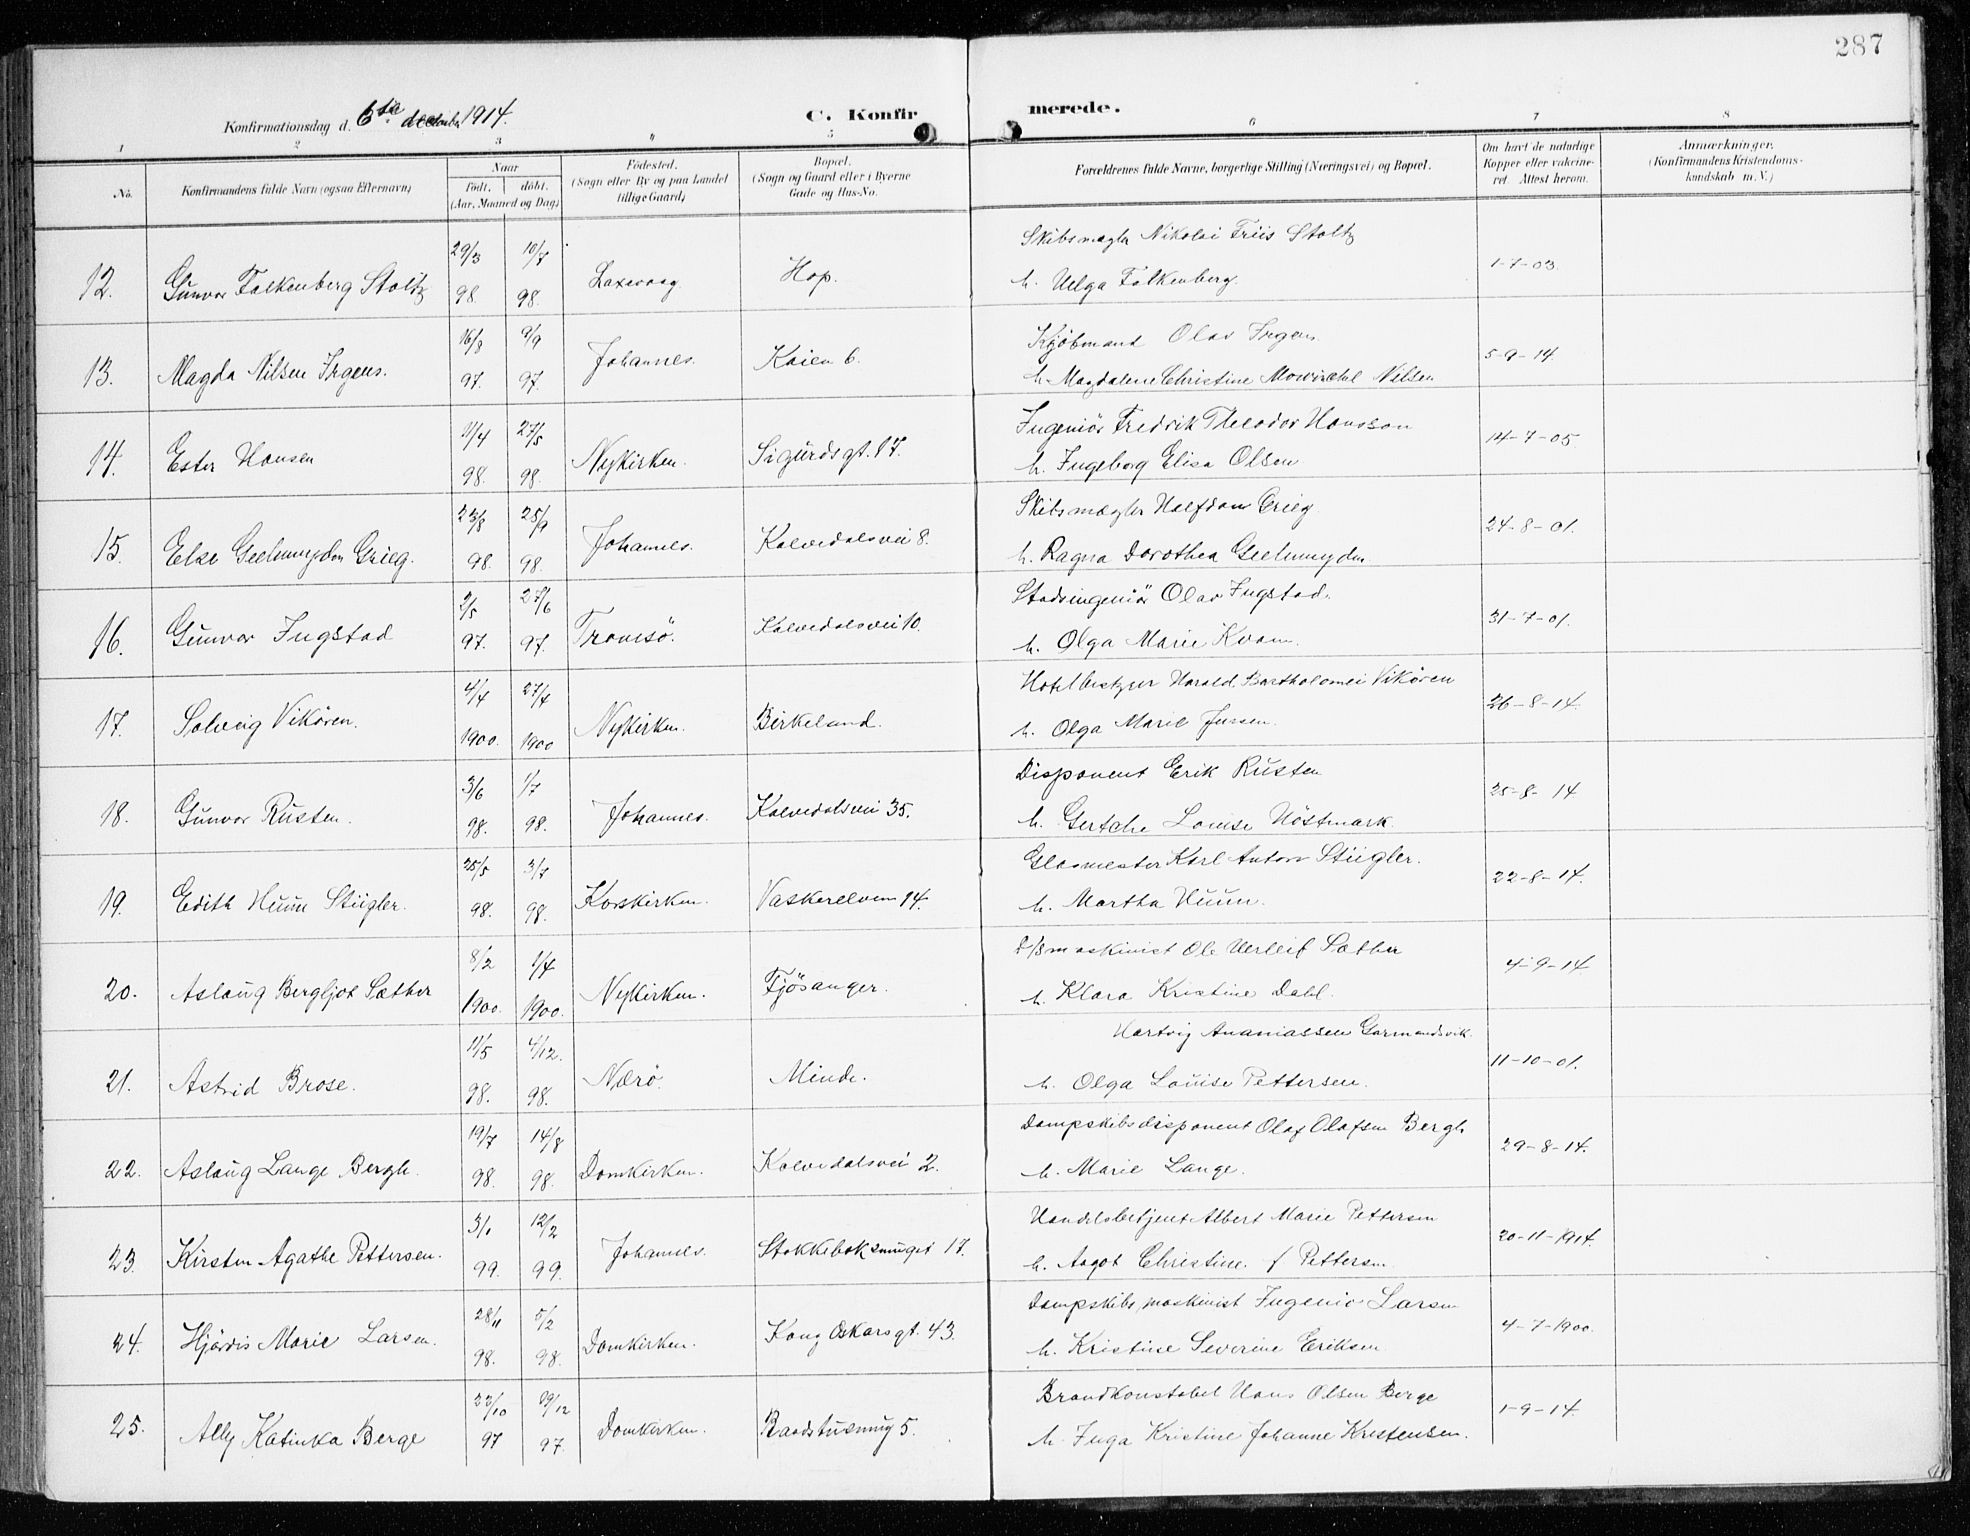 287
Konfirmationsdag d. 6te december 1914.
C. Konfirmerede.
1 2 3 4 5 6 7 8
No.
Konfirmandens fulde Navn (ogsaa Efternavn)
Naar
født. døbt.
(Aar, Maaned og Dag)
Fødested.
(Sogn eller By og paa Landet
tillige Gaard)
Bopæl.
(Sogn og Gaard eller i Byerne
Gade og Hus-No.
Forældrenes fulde Navne, borgerlige Stilling (Næringsvei) og Bopæl.
Om havt de naturlige
Kopper eller vakcine-
ret. Attest herom.
Anmærkninger.
(Konfirmandens Kristendoms-
kundskab m. V.)
29/3 10/7 Skibsmægler Nikolai Friis Stoltz
12. Gunvor Falkenberg Stoltz 98. 98. Laxevaag Hop. h. Helga Falkenberg. 1-7-03.
16/8 9/9 Kjöbmand Olav Irgens
13. Magda Nilsen Irgens. 97. 97. Johannes. Kaien 6. h. Magdalene Christine Nilsen 5-9-14.
11/4 27/5 Ingeniör Fredrik Theodor Hansson
14. Ester Hansen 98. 98. Nykirken. Sigurdsgt. 17. h. Ingeborg Elisa Olsen 14-7-05
23/8 25/9 Skibsmægler Halfdan Grieg.
15. Else Geelmuyden Grieg. 98. 98. Johannes. Kalvedalsvei 8. h. Ragna Dorothea Geelmuyden 24-8-01.
2/5 27/6 Stadsingeniör Olav Ingstad.
16. Gunvor Ingstad 97. 97. Tromsö. Kalvedalsvei 10. h. Olga Marie Kvam. 31-7-01.
4/4 27/4 Hotelbestyrer Harald Bartholomei Vikören
17. Solveig Vikören. 1900. 1900 Nykirken. Birkeland. h. Olga Marie Jensen. 26-8-14.
3/6 1/7 Disponent Erik Rusten
18. Gunvor Rusten. 98. 98. Johannes. Kalvedalsvei 35. h. Gertche Louise Höstmark. 25-8-14
25/5 3/7 Glasmester Karl Anton Stügler.
19. Edith Huun Stügler. 98. 98. Korskirken. Vaskerelven 14. h. Martha Huun. 22-8-14.
8/2 1/4 D/Smaskinist Ole Herleif Sæther
20. Aslaug Bergljot Sæther 1900. 1900. Nykirken. Fjösanger. h. Klara Kristine Dahl. 4-9-14
11/5 4/12. Hartvig Ananiassen Garmandsvik.
21. Astrid Brose. 98. 98. Nærö. Minde. h. Olga Louise Pettersen. 11-10-01.
19/7 14/8 Dampskibsdisponent Olaf Olafsen Bergh
22. Aslaug Lange Bergh. 98. 98. Domkirken. Kalvedalsvei 2. h. Marie Lange. 29-8-14.
3/1 12/2 Handelsbetjent Albert Marie Pettersen
23. Kirsten Agathe Pettersen. 99. 99. Johannes. Stokkeboksmuget 17. h. Aagot Christine f Pettersen. 20-11-1914.
28/11 5/2 Dampskibsmaskinist Ingenio Larsen
24. Hjördis Marie Larsen. 98. 98. Domkirken. Kong Oskarsgt. 43. h. Kristine Severine Eriksen. 4-7-1900.
22/10 19/12 Brandkonstabel Hans Olsen Berge
25. Ally Katinka Berge 97 97. Domkirken. Baadstusmug 5. h. Inga Kristine Johanne Kristensen. 1-9-14.